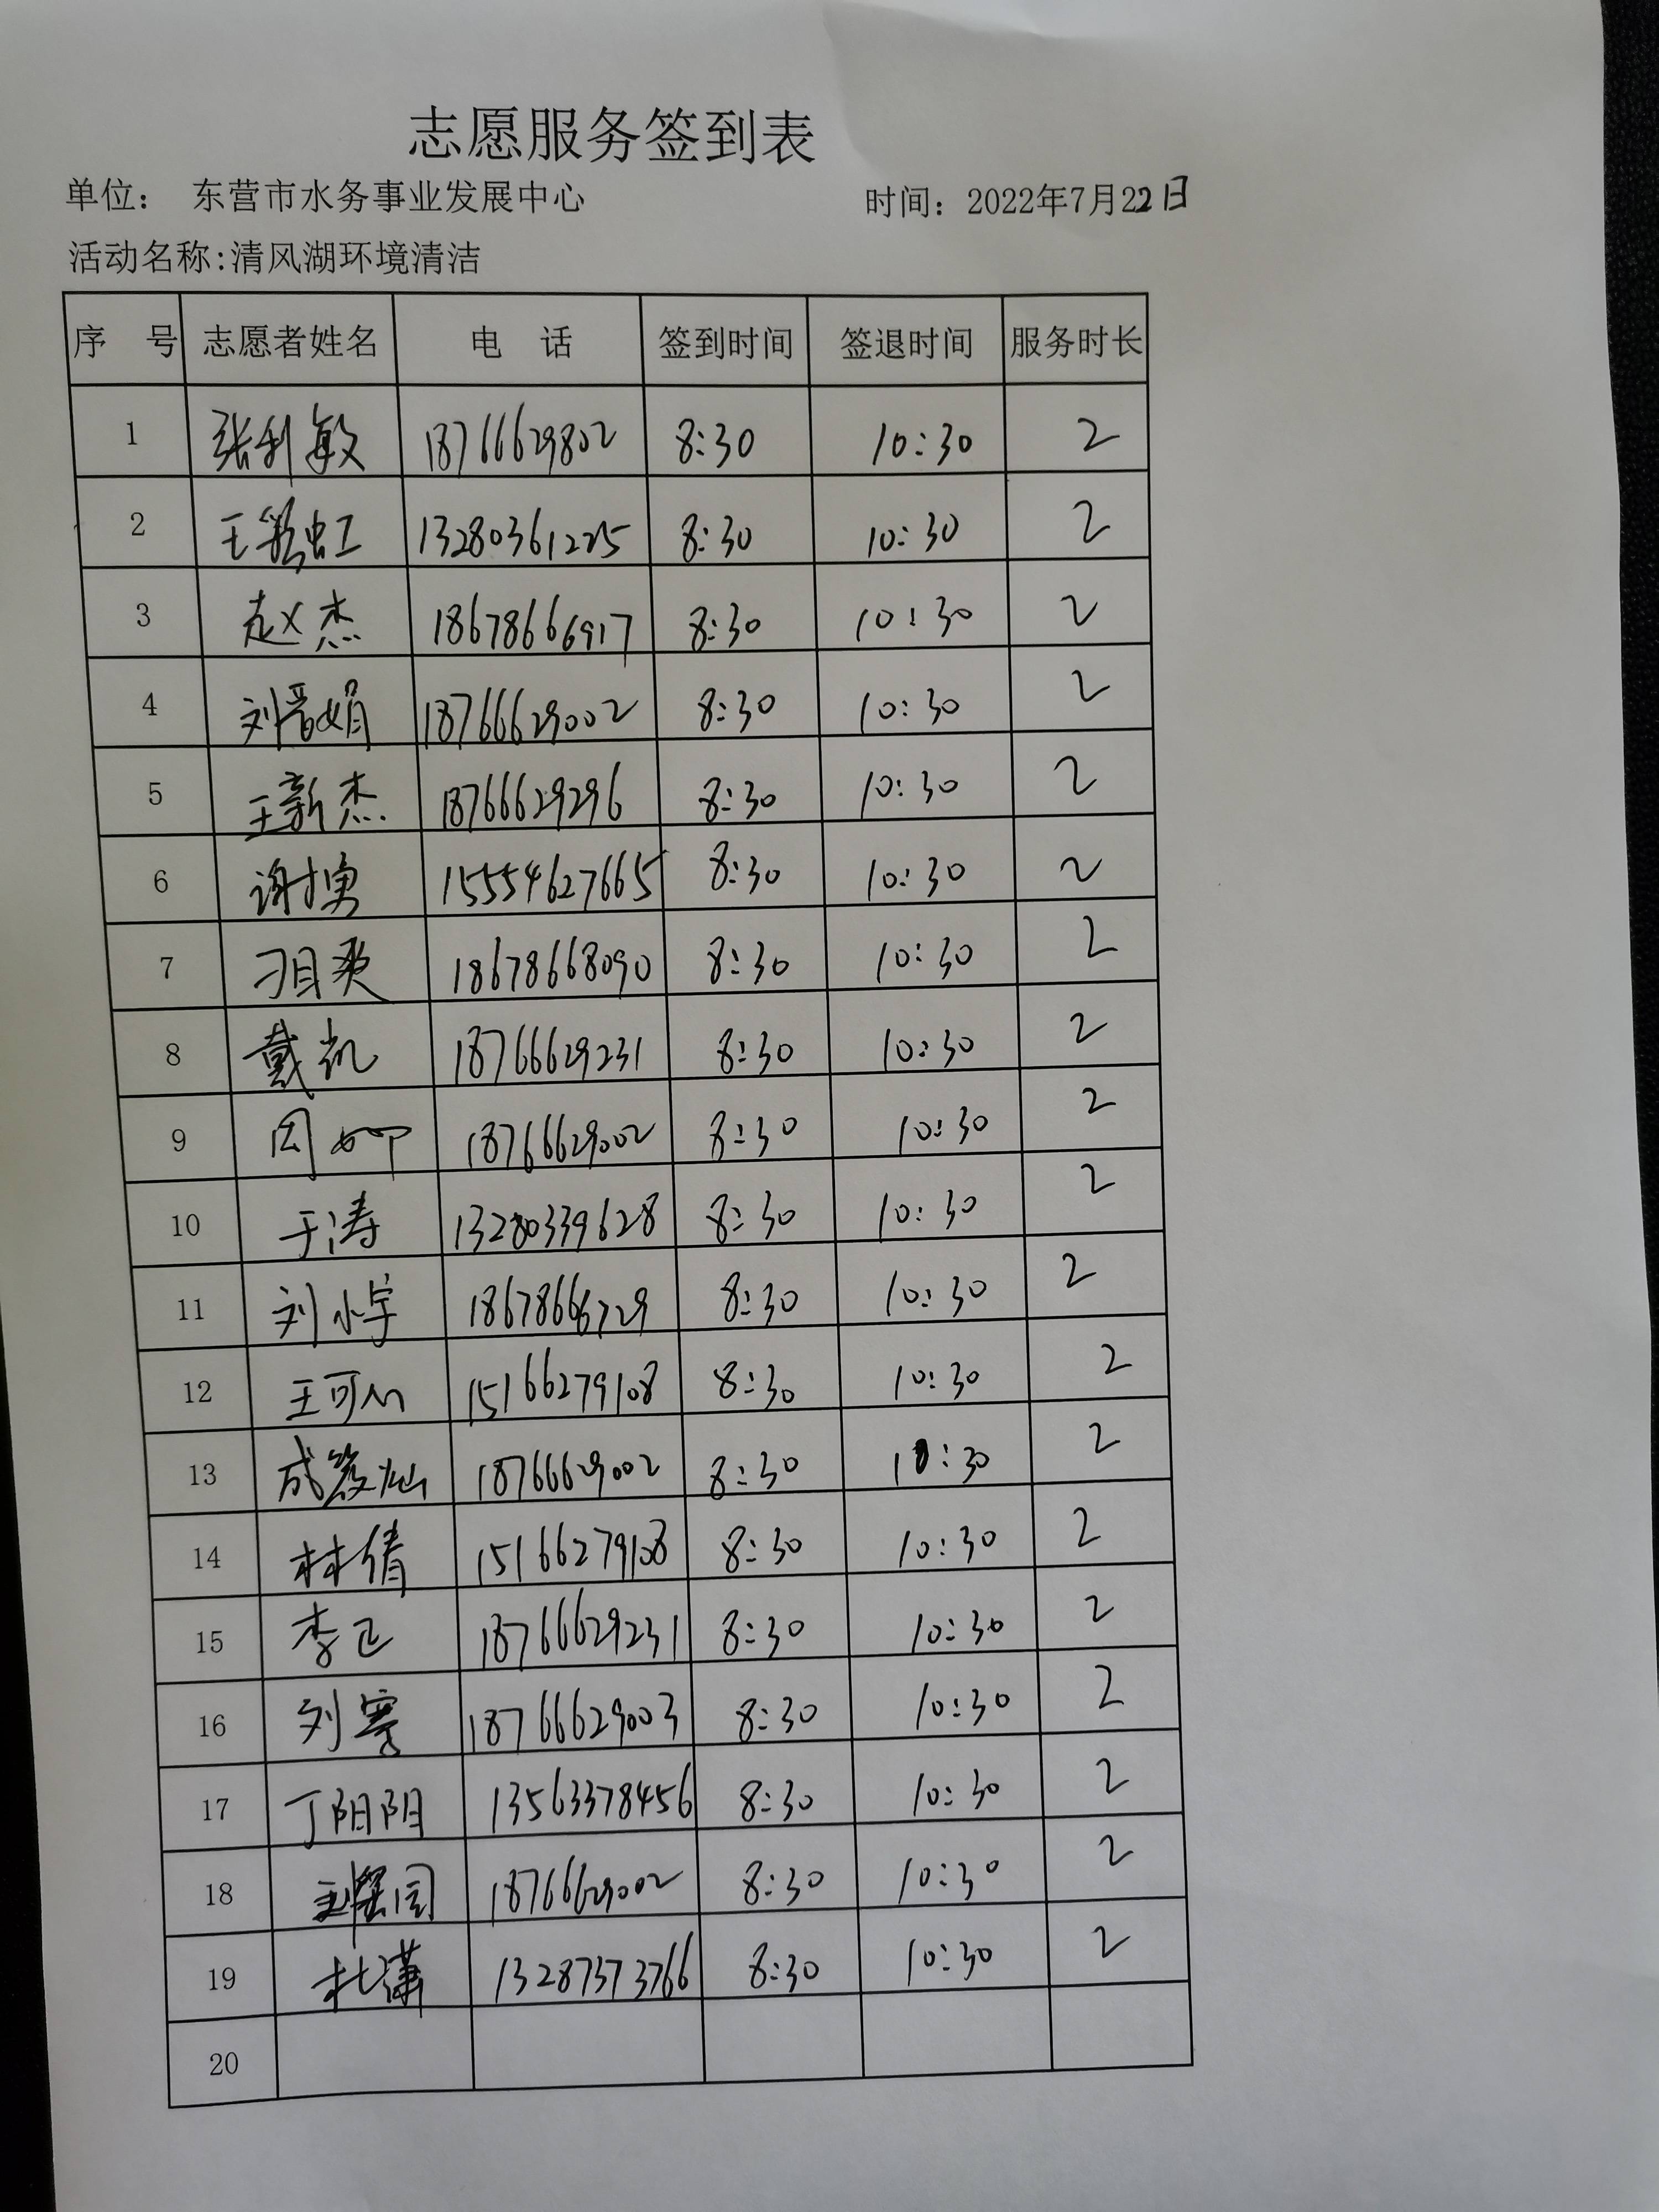 志愿服务签到表
单位： 东营市水务事业发展中心 时间：2022年7月22日
活动名称:清风湖环境清洁
序 号 志愿者姓名 电 话 签到时间 签退时间 服务时长
1 张利敏 18766629802 8:30 10:30 2
2 王彩虹 13280361225 8:30 10:30 2
3 赵杰 18678666917 8:30 10:30 2
4 刘晋娟 18766629002 8:30 10:30 2
5 王新杰 18766629296 8:30 10:30 2
6 谢勇 15554627665 8:30 10:30 2
7 刁目爽 18678668090 8:30 10:30 2
8 戴凯 18766629231 8:30 10:30 2
9 周 18766629002 8:30 10:30 2
10 于涛 13280339628 8:30 10:30 2
11 刘小宇 18678666729 8:30 10:30 2
12 王可心 15166279108 8:30 10:30 2
13 成筱灿 18766629002 8:30 10:30 2
14 林倩 15166279108 8:30 10:30 2
15 李正 18766629231 8:30 10:30 2
16 刘骞 18766629003 8:30 10:30 2
17 丁阳阳 13563378456 8:30 10:30 2
18 18766629002 8:30 10:30 2
19 杜潇 13287373766 8:30 10:30 2
20